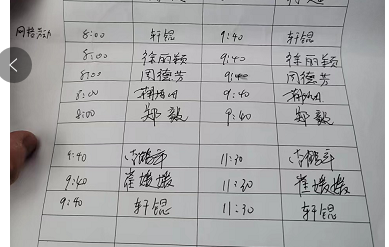 8:00 轩锟 9:40 轩锟
8:00 徐丽颖 9:40 徐丽颖
8:00 闵德芳 9:40 闵德芳
8:00 9:40
8:00 郑毅 9:40 郑毅
9:40 11:30
9:40 崔媛媛 11:30 崔媛媛
9:40 轩锟 11:30 轩锟